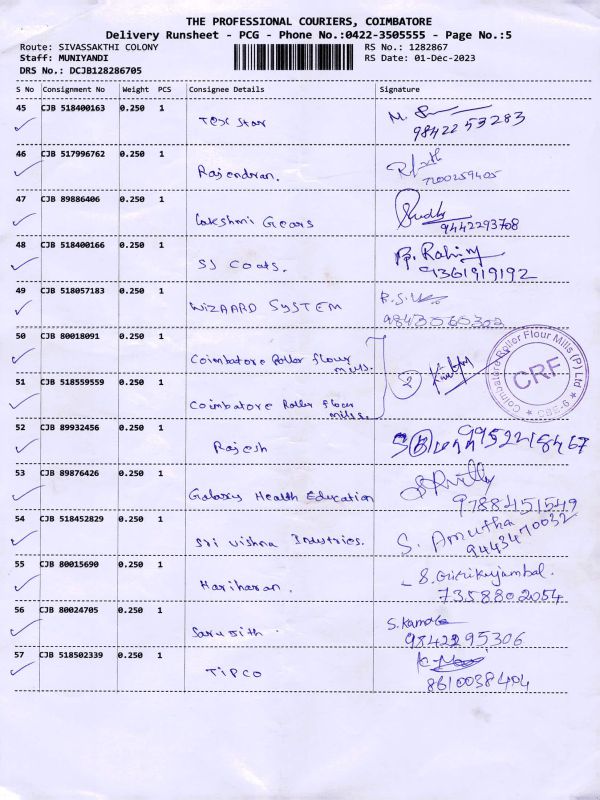 THE PROFESSIONAL COURIERS, COIMBATORE
Delivery Runsheet - PCG - Phone No.:0422-3505555 - Page No.:5
Route: SIVASSAKTHI COLONY RS No.: 1282867
Staff: MUNIYANDI RS Date: 01-Dec-2023
DRS No.: DCJB128286705
S No Consignment No Weight PCS Consignee Details Signature
45 CJB 518400163 0.250 1 Tex Star M.
9842253283
46 CJB 517996762 0.250 1 Rajendran.
7200259405
47 CJB 89886406 0.250 1 Lakshmi Gears
9442293708
48 CJB 518400166 0.250 1 SS Coats.
9361919192
49 CJB 518057183 0.250 1 WIZAARD SYSTEM
50 CJB 80018091 0.250 1 Coimbatore Roller flour
mills.
51 CJB 518559559 0.250 1 Coimbatore Roller Flour
mills.
2
Coimbatore Roller Flour Mills (P) Ltd
CRF
CBE-6
52 CJB 89932456 0.250 1 Rajesh
53 CJB 89876426 0.250 1 Galaxy Health Education
9788451549
54 CJB 518452829 0.250 1 Sri Vishna Industries. S. Amutha
9443470032
55 CJB 80015690 0.250 1 Hariharan.
7358802054
56 CJB 80024705 0.250 1 S. Kamala
9842295306
57 CJB 518502339 0.250 1 TIPCO
8610038404